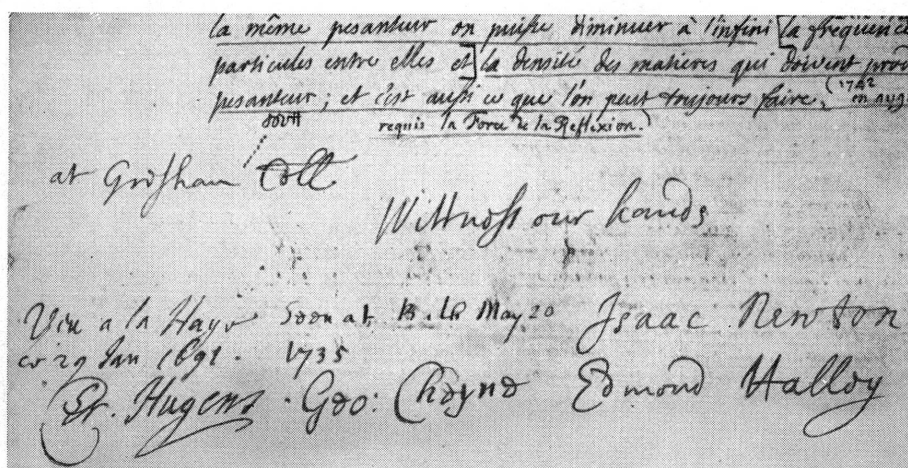 la même pesanteur on puisse diminuer à l'infini [la fréquence
particules entre elles et] la densité des matieres qui doivent prod
pesanteur; et c'est aussi ce que l'on peut toujours faire, (1742 en aug
requis la Force de la Reflexion.)
at Gresham Coll
Wittness our hands
Vin a la Haye
ce 29 Jan 1691.
Seen at Bath May 20
1735
Isaac Newton
Hugens
Geo: Cheyne
Edmond Halley